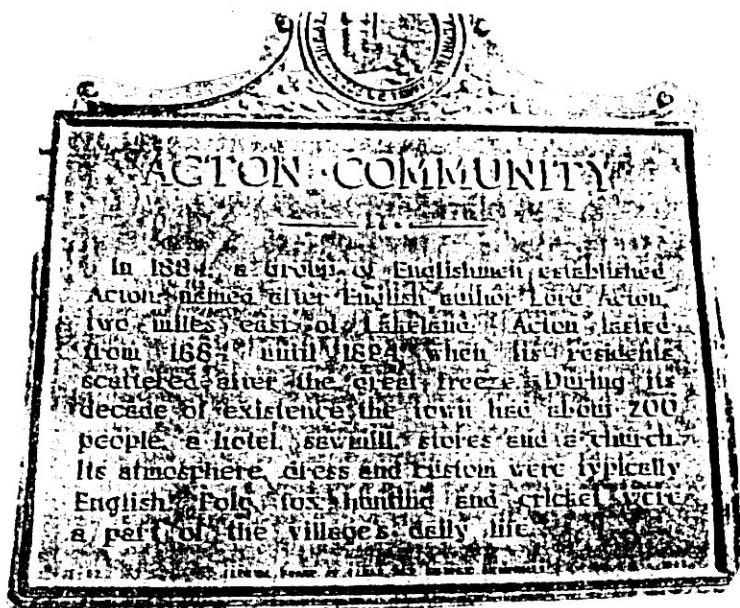 ACTON COMMUNITY
In 1884, a group of Englishmen established
Acton, named after English author Lord Acton,
two miles east of Lakeland. Acton lasted
from 1884 until 1894, when its residents
scattered after the great freeze. During its
decade of existence the town had about 200
people, a hotel, sawmill, stores and a church.
Its atmosphere, dress and custom were typically
English. Polo, fox hunting and cricket were
a part of the village's daily life.